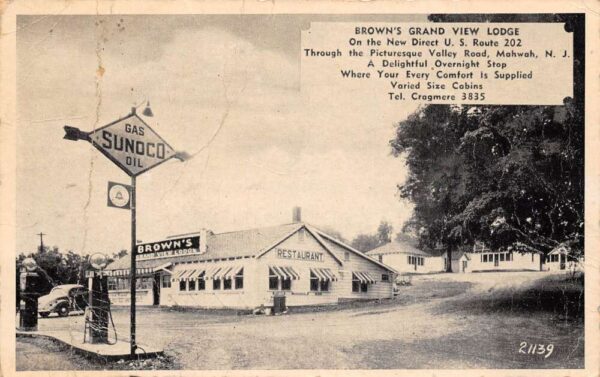 BROWN'S GRAND VIEW LODGE
On the New Direct U. S. Route 202
Through the Picturesque Valley Road, Mahwah, N. J.
A Delightful Overnight Stop
Where Your Every Comfort Is Supplied
Varied Size Cabins
Tel. Cragmere 3835
GAS
SUNOCO
OIL
BROWN'S
GRAND VIEW LODGE
RESTAURANT
21139